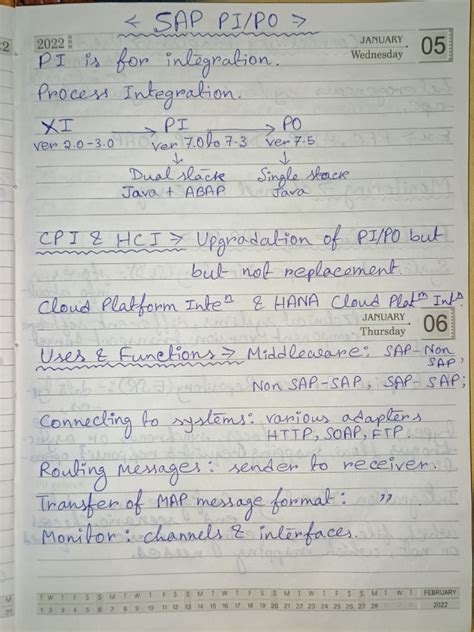 < SAP PI/PO >
2022
JANUARY
Wednesday 05
PI is for integration.
Process Integration.
XI → PI → PO
ver 2.0-3.0 ver 7.0 to 7.3 ver 7.5
↓ ↓
Dual stack Single stack
Java + ABAP Java
CPI & HCI > Upgradation of PI/PO but
but not replacement
Cloud Platform Inteⁿ & HANA Cloud Platᵐ Intⁿ
JANUARY
Thursday 06
Uses & Functions > Middleware: SAP-Non
SAP,
Non SAP-SAP, SAP-SAP,
Connecting to systems: various adapters
HTTP, SOAP, FTP
Routing messages: sender to receiver.
Transfer of MAP message format: "
Monitor: channels & interfaces.
T W T F S S M T W T F S S M T W T F S S M T W T F S S M
FEBRUARY
1 2 3 4 5 6 7 8 9 10 11 12 13 14 15 16 17 18 19 20 21 22 23 24 25 26 27 28
2022